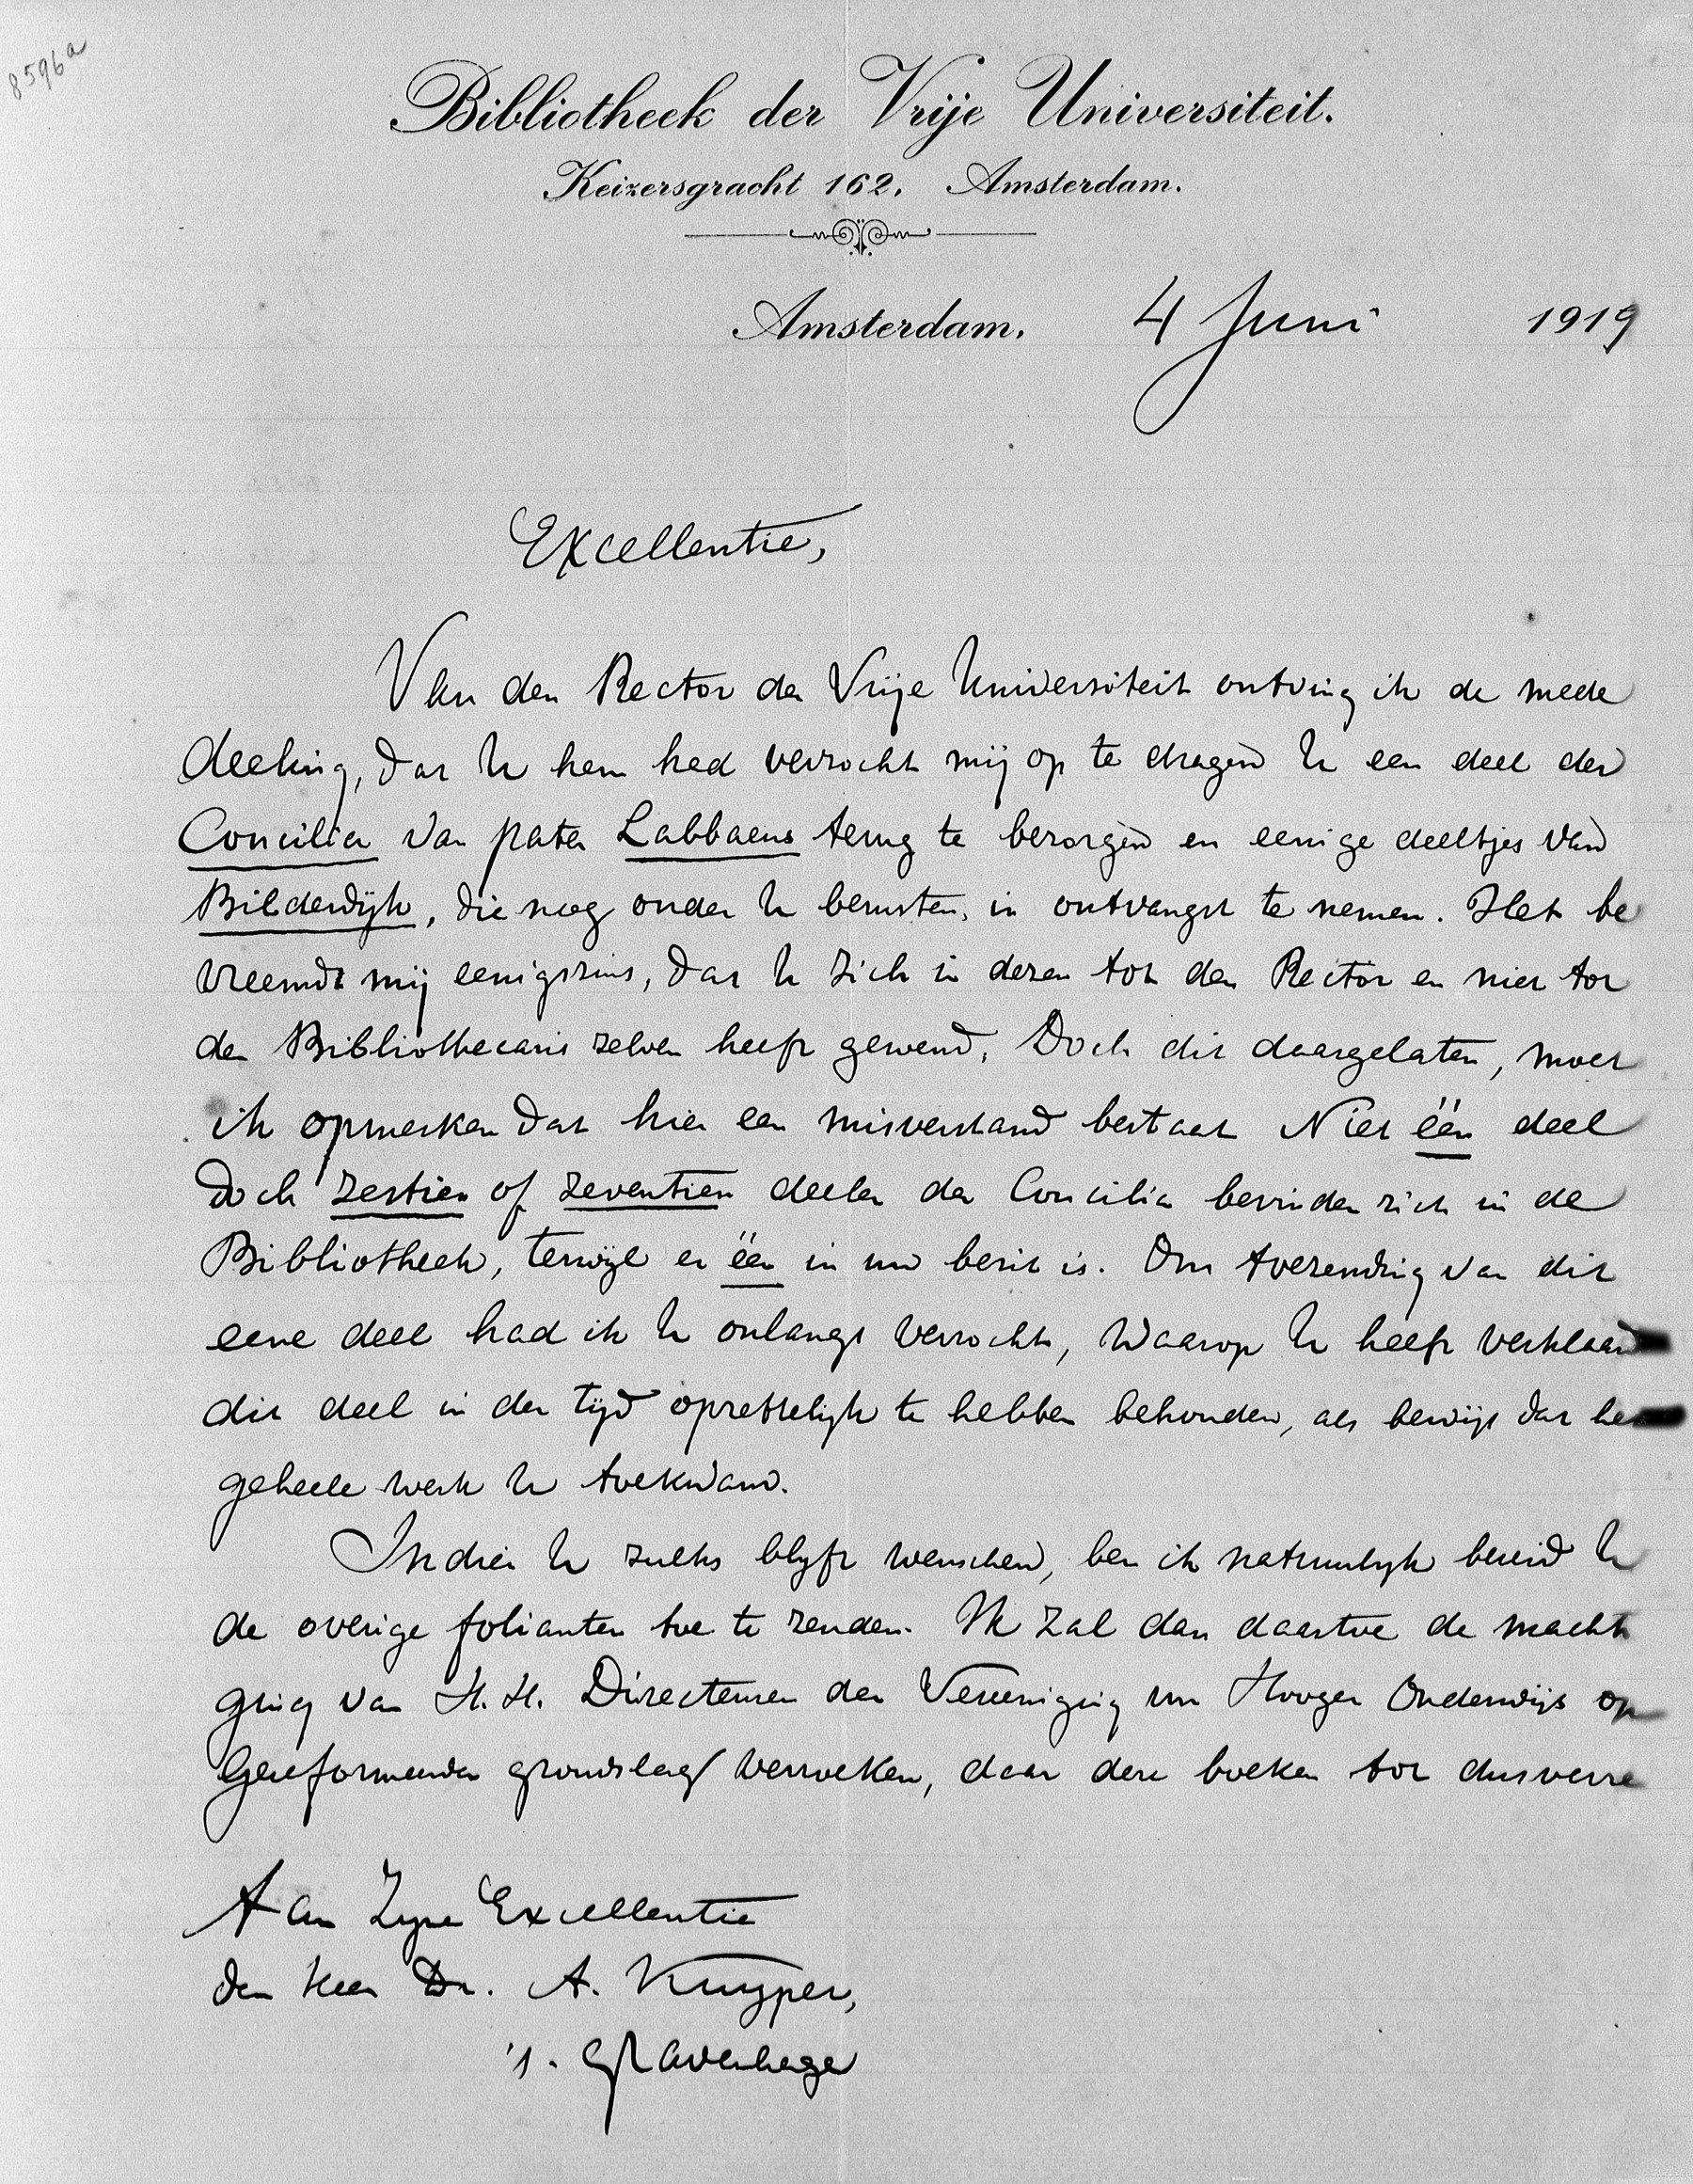 8596a
Bibliotheek der Vrije Universiteit.
Keizersgracht 162, Amsterdam.
Amsterdam, 4 Juni 1919
Excellentie,
Van den Rector der Vrije Universiteit ontving ik de mede
deeling, dat U hem had verzocht mij op te dragen U een deel der
Concilia van pater Labbaeus terug te bezorgen en eenige deeltjes van
Bilderdijk, die nog onder U berusten, in ontvangst te nemen. Het be
vreemdt mij eenigszins, dat U zich in dezen tot den Rector en niet tot
den Bibliothecaris zelven heeft gewend. Doch dit daargelaten, moet
ik opmerken dat hier een misverstand bestaat Niet één deel
doch zestien of zeventien deelen der Concilia bevinden zich in de
Bibliotheek, terwijl er één in uw bezit is. Om toezending van dit
eene deel had ik U onlangs verzocht, waarop U heeft verklaard
dit deel in der tijd opzettelijk te hebben behouden, als bewijs dat het
geheele werk U toekwam.
Indien U zulks blijft wenschen, ben ik natuurlijk bereid U
de overige folianten toe te zenden. Ik zal dan daartoe de machti
ging van H.H. Directeuren der Vereeniging van Hooger Onderwijs op
Gereformeerden grondslag verzoeken, daar deze boeken tot dusverre
Aan Zijne Excellentie
den Heer Dr. A. Kuyper,
's. Gravenhage